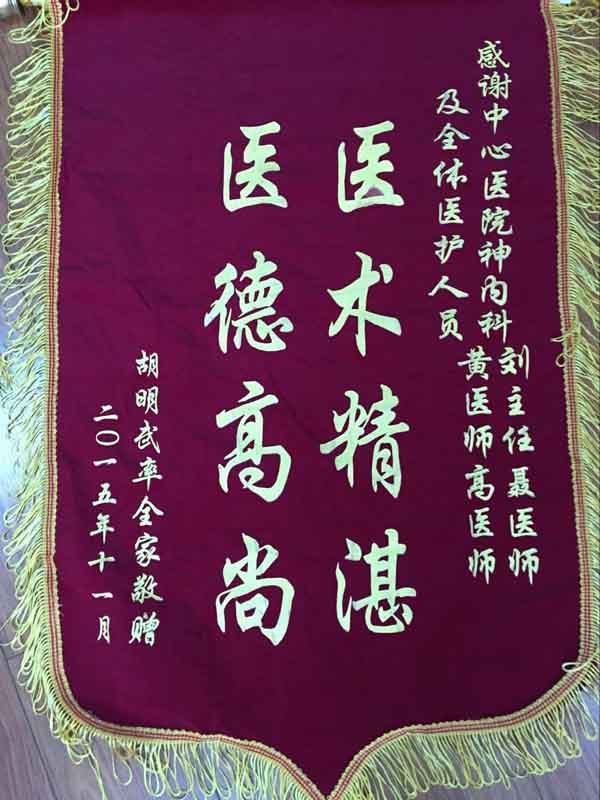 感谢中心医院神内科刘主任聂医师
黄医师高医师
及全体医护人员
医术精湛
医德高尚
胡明武率全家敬赠
二〇一五年十一月